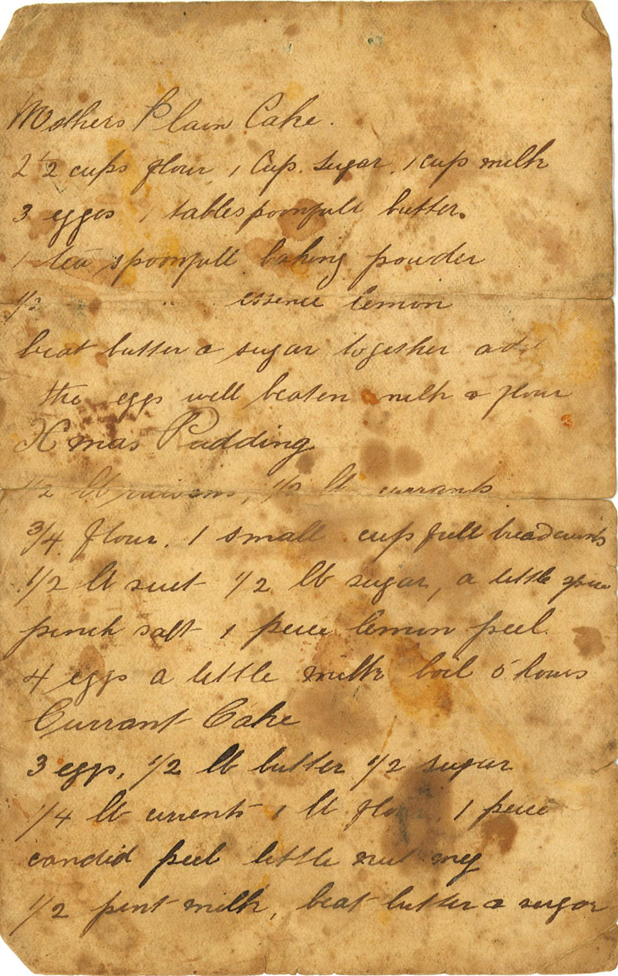 Mothers Plain Cake.
2 1/2 cups flour, 1 Cup. sugar, 1 cup milk
3 eggs 1 tablespoonfull butter.
1 tea spoonfull baking powder
1/2 " " essence lemon
beat butter & sugar together add
the eggs well beaten milk & flour
Xmas Pudding
1/2 lb raisens, 1/2 lb currants
3/4 flour. 1 small cup full breadcrumbs
1/2 lb suet 1/2 lb sugar, a little spice
pinch salt 1 peice lemon peel
4 eggs a little milk boil 5 hours
Currant Cake
3 eggs, 1/2 lb butter 1/2 sugar
1/4 lb currents 1 lb flour, 1 peice
candid peel little nut meg
1/2 pint milk, beat butter & sugar